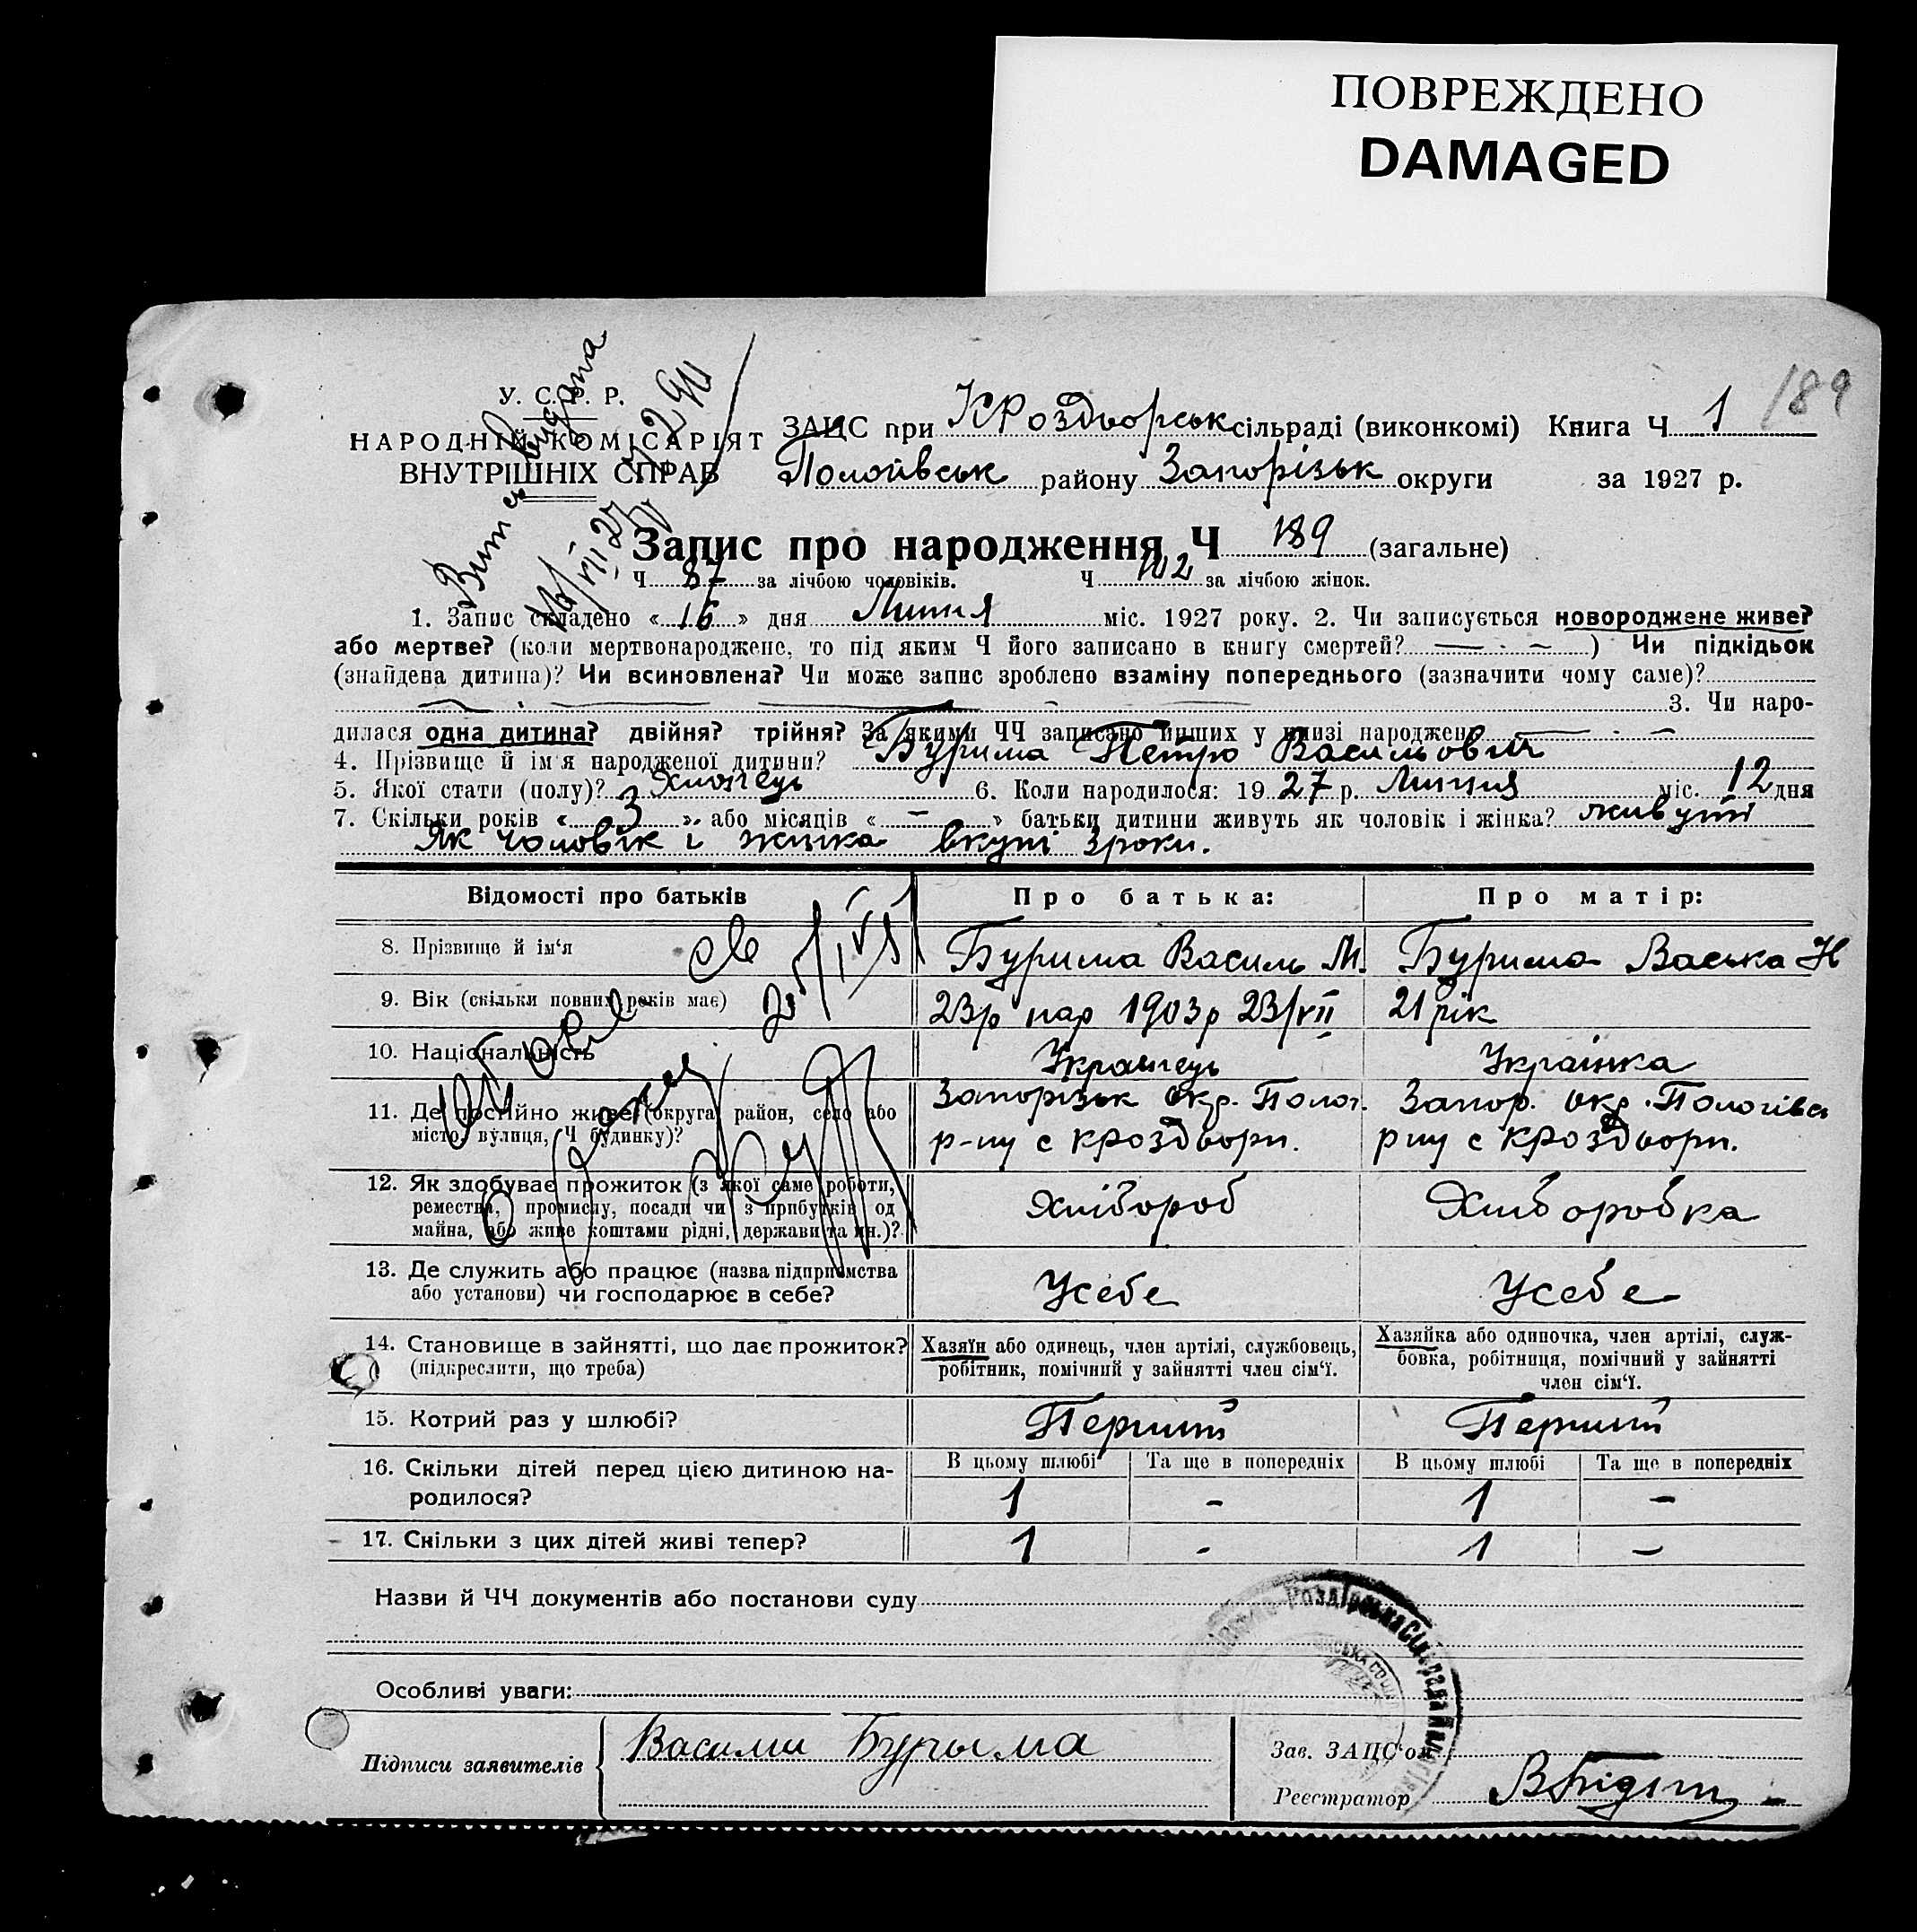 ПОВРЕЖДЕНО
DAMAGED
189
У. С. Р. Р.
НАРОДНІЙ КОМІСАРІЯТ
ВНУТРІШНІХ СПРАВ
ЗАЦС при КРоздворськ сільраді (виконкомі) Книга Ч 1
Пологівськ району Запорізьк округи за 1927 р.
Запис про народження Ч 189 (загальне)
Ч 87 за лічбою чоловіків. Ч 102 за лічбою жінок.
1. Запис складено « 16 » дня Липня міс. 1927 року. 2. Чи записується новороджене живе?
або мертве? (коли мертвонароджене, то під яким Ч його записано в книгу смертей? — · — ) Чи підкідьок
(знайдена дитина)? Чи всиновлена? Чи може запис зроблено взаміну попереднього (зазначити чому саме)?
3. Чи наро-
дилася одна дитина? двійня? трійня? За якими ЧЧ записано инших у книзі народжень —
4. Прізвище й ім'я народженої дитини? Бурима Петро Васильович
5. Якої стати (полу)? Хлопець 6. Коли народилося: 19 27 р. Липня міс. 12 дня
7. Скільки років « 3 » або місяців « — » батьки дитини живуть як чоловік і жінка? живуть
Як чоловік і жінка вкупі 3 роки.
Відомості про батьків Про батька: Про матір:
8. Прізвище й ім'я Бурима Василь М. Бурима Васька Н
9. Вік (скільки повних років має) 23р нар 1903р 23/VII 21 рік
10. Національність Українець Українка
11. Де постійно живе (округа, район, село або Запорізьк Окр. Полог. Запор. Окр. Пологівсь
місто, вулиця, Ч будинку)? р-ну с КРоздори. р ну с КРоздори.
12. Як здобуває прожиток (з якої саме роботи,
ремества, промислу, посади чи з прибутків од Хлібороб Хліборобка
майна, або живе коштами рідні, держави та ин.)?
13. Де служить або працює (назва підприємства
або установи) чи господарює в себе? Усебе Усебе
14. Становище в зайнятті, що дає прожиток? Хазяїн або одинець, член артілі, службовець, Хазяйка або одиночка, член артілі, служ-
(підкреслити, що треба) робітник, помічний у зайнятті член сім'ї. бовка, робітниця, помічний у зайнятті
член сім'ї.
15. Котрий раз у шлюбі? Перший Перший
16. Скільки дітей перед цією дитиною на- В цьому шлюбі Та ще в попередніх В цьому шлюбі Та ще в попередніх
родилося? 1 - 1 -
17. Скільки з цих дітей живі тепер? 1 - 1 -
Назви й ЧЧ документів або постанови суду
Особливі уваги:
Підписи заявителів Василь Бурыма Зав. ЗАЦС'ом
Реєстратор